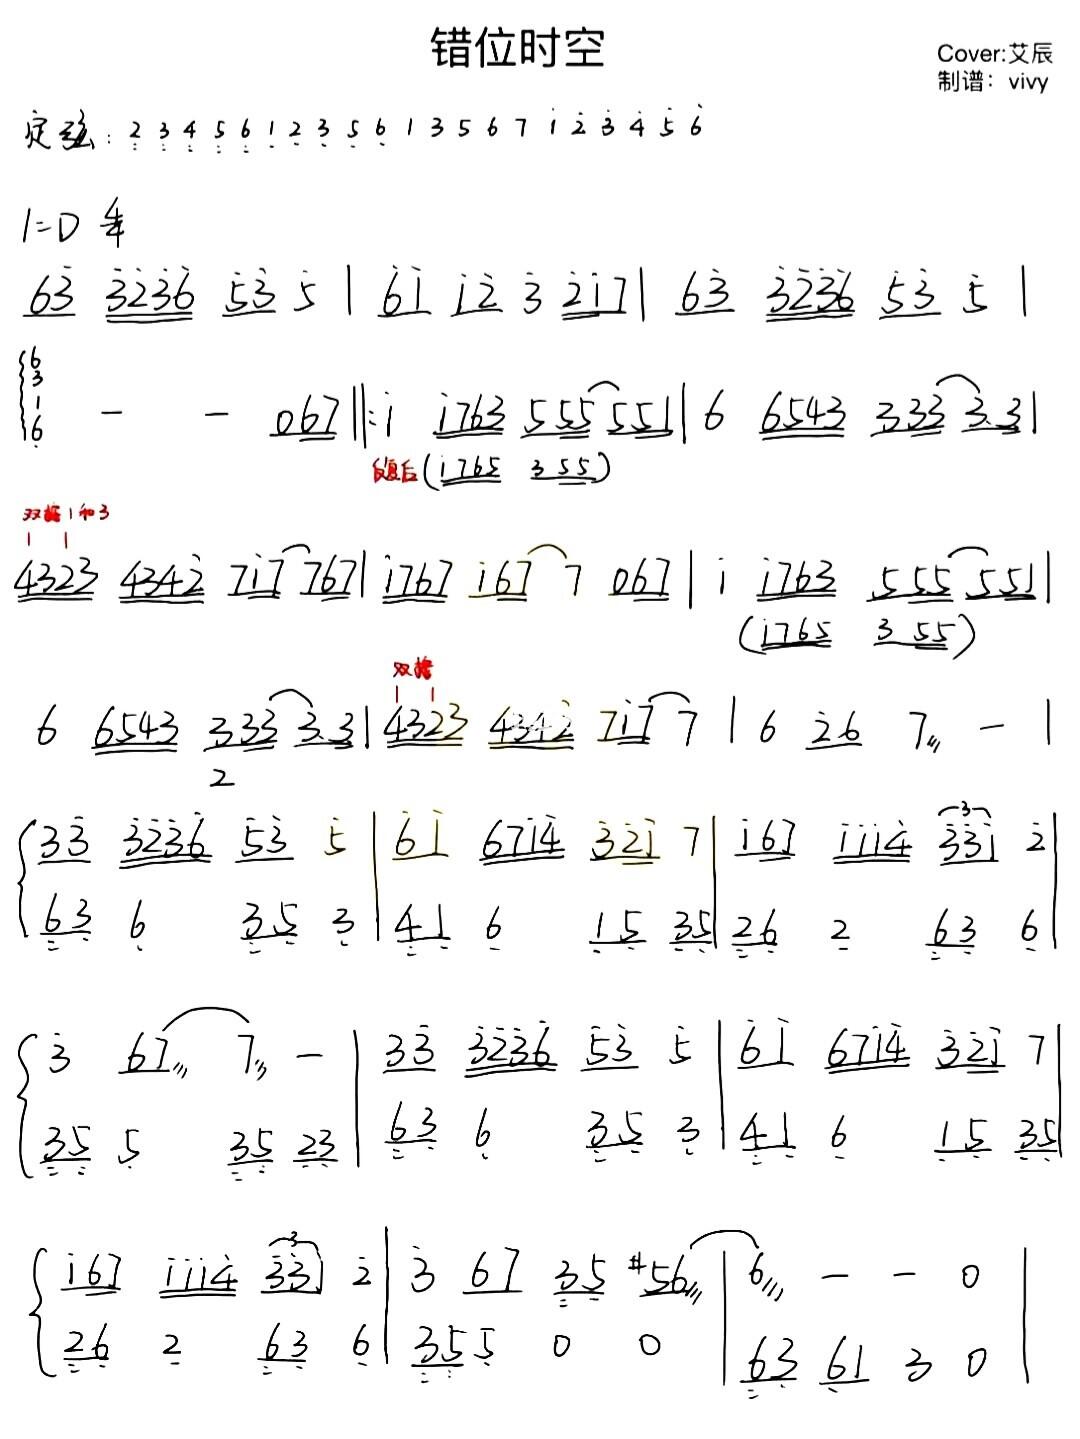 错位时空
Cover:艾辰
制谱：vivy
定弦: 2̣̣ 3̣̣ 4̣̣ 5̣̣ 6̣̣ 1̣ 2̣ 3̣ 5̣ 6̣ 1 3 5 6 7 1̇ 2̇ 3̇ 4̇ 5̇ 6̇
1=D 4/4
63̇ 3̇2̇3̇6̇ 5̇3̇ 5̇ | 6̇1̇ 1̇2̇ 3̇ 2̇1̇7 | 63̇ 3̇2̇3̇6̇ 5̇3̇ 5̇ |
6
3
1
6̣ - - 067 ||: 1̇ 1̇763 555 551 | 6 6543 333 3.3 |
反复后 (1̇765 3 55)
双摇1和3
4323 4342̇ 71̇7 767 | 1̇767 1̇67 7 067 | 1̇ 1̇763 555 551 |
(1̇765 3 55)
双摇
6 6543 333 3.3 | 4323 4342̇ 71̇7 7 | 6 2̇6 7 - |
2
33̇ 3̇2̇3̇6̇ 5̇3̇ 5̇ | 6̇1̇ 671̇4̇ 3̇2̇1̇ 7 | 1̇67 1̇1̇1̇4̇ 3̇3̇1̇ 2̇ |
3
6̣̣3̣ 6̣ 3̣̣5̣ 3̣ | 4̣̣1̣ 6̣ 1̣5̣ 3̣5̣ | 2̣̣6̣ 2̣ 6̣̣3̣ 6̣ |
3̇ 67 7 - | 33̇ 3̇2̇3̇6̇ 5̇3̇ 5̇ | 6̇1̇ 671̇4̇ 3̇2̇1̇ 7 |
3̣̣5̣ 5̣ 3̣̣5̣ 2̣3̣ | 6̣̣3̣ 6̣ 3̣̣5̣ 3̣ | 4̣̣1̣ 6̣ 1̣5̣ 3̣5̣ |
3
1̇67 1̇1̇1̇4̇ 3̇3̇1̇ 2̇ | 3̇ 67 3̣̣5̣ #56 | 6 - - 0 |
2̣̣6̣ 2̣ 6̣̣3̣ 6̣ | 3̣̣5̣5̣ 0 0 | 6̣̣3̣ 6̣1 3 0 |